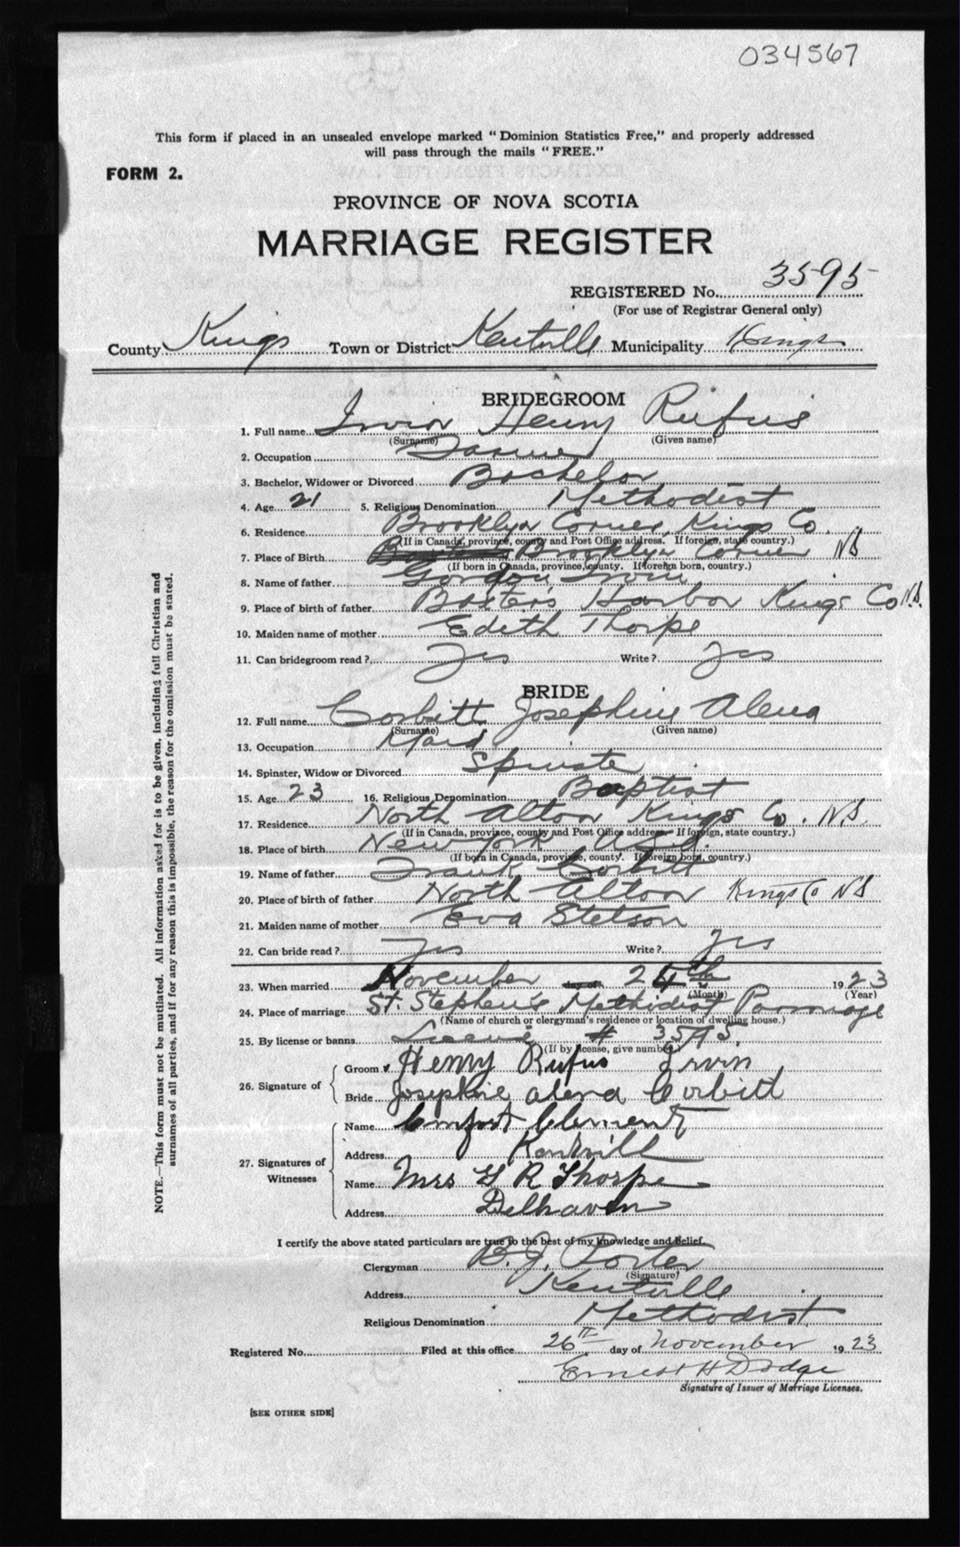 034567
This form if placed in an unsealed envelope marked "Dominion Statistics Free," and properly addressed
will pass through the mails "FREE."
FORM 2.
PROVINCE OF NOVA SCOTIA
MARRIAGE REGISTER
REGISTERED No. 3595
(For use of Registrar General only)
County Kings Town or District Kentville Municipality Kings
BRIDEGROOM
1. Full name Irvin Henry Rufus
(Surname) (Given name)
2. Occupation Farmer
3. Bachelor, Widower or Divorced Bachelor
4. Age 21 5. Religious Denomination Methodist
6. Residence Brooklyn Corner, Kings Co.
(If in Canada, province, county and Post Office address. If foreign, state country.)
7. Place of Birth Brooklyn Corner NS
(If born in Canada, province, county. If foreign born, country.)
8. Name of father Gordon Irvin
9. Place of birth of father Baxters Harbor Kings Co N.S.
10. Maiden name of mother Edith Thorpe
11. Can bridegroom read? Yes Write? Yes
BRIDE
12. Full name Corbitt Josephine Alena
(Surname) (Given name)
13. Occupation Maid
14. Spinster, Widow or Divorced Spinster
15. Age 23 16. Religious Denomination Baptist
17. Residence North Alton Kings Co. N.S.
(If in Canada, province, county and Post Office address If foreign, state country.)
18. Place of birth New York USA.
(If born in Canada, province, county. If foreign born, country.)
19. Name of father Frank Corbitt
20. Place of birth of father North Alton Kings Co NS
21. Maiden name of mother Eva Stetson
22. Can bride read? Yes Write? Yes
23. When married November 24th 1923
(Month) (Year)
24. Place of marriage St. Stephen's Methodist Parsonage
(Name of church or clergyman's residence or location of dwelling house.)
25. By license or banns # 3595.
(If by license, give number)
26. Signature of
Groom Henry Rufus Irvin
Bride Josephine Alena Corbitt
27. Signatures of Witnesses
Name Clement
Address Kentville
Name Mrs G R Thorpe
Address Delhaven
I certify the above stated particulars are true to the best of my knowledge and belief.
Clergyman B. J. Porter
(Signature)
Address Kentville
Religious Denomination Methodist
Registered No. Filed at this office 26th day of November 1923
Ernest H Dodge
Signature of Issuer of Marriage Licenses.
[SEE OTHER SIDE]
NOTE.—This form must not be mutilated. All information asked for is to be given, including full Christian and
surnames of all parties, and if for any reason this is impossible, the reason for the omission must be stated.